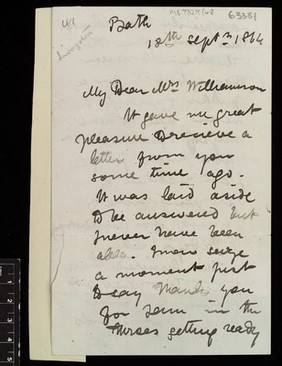 63351
Bath
18th Septr 1864
My Dear Mrs Williamson
It gave me great
pleasure to recieve a
letter from you
some time ago.
It was laid aside
to be answered but
I never have been
able. I now seize
a moment just
to say thank you
for in the
Nurses getting ready